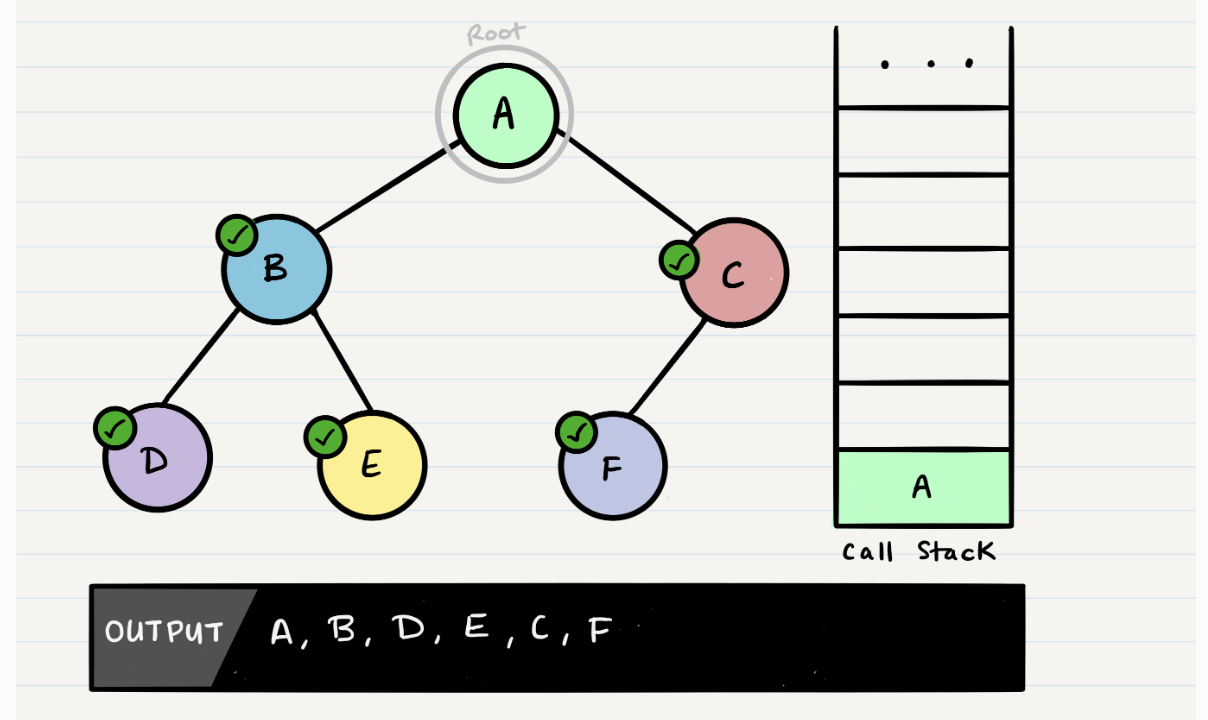 Root
A
B
C
D
E
F
. . .
A
Call Stack
OUTPUT A, B, D, E, C, F